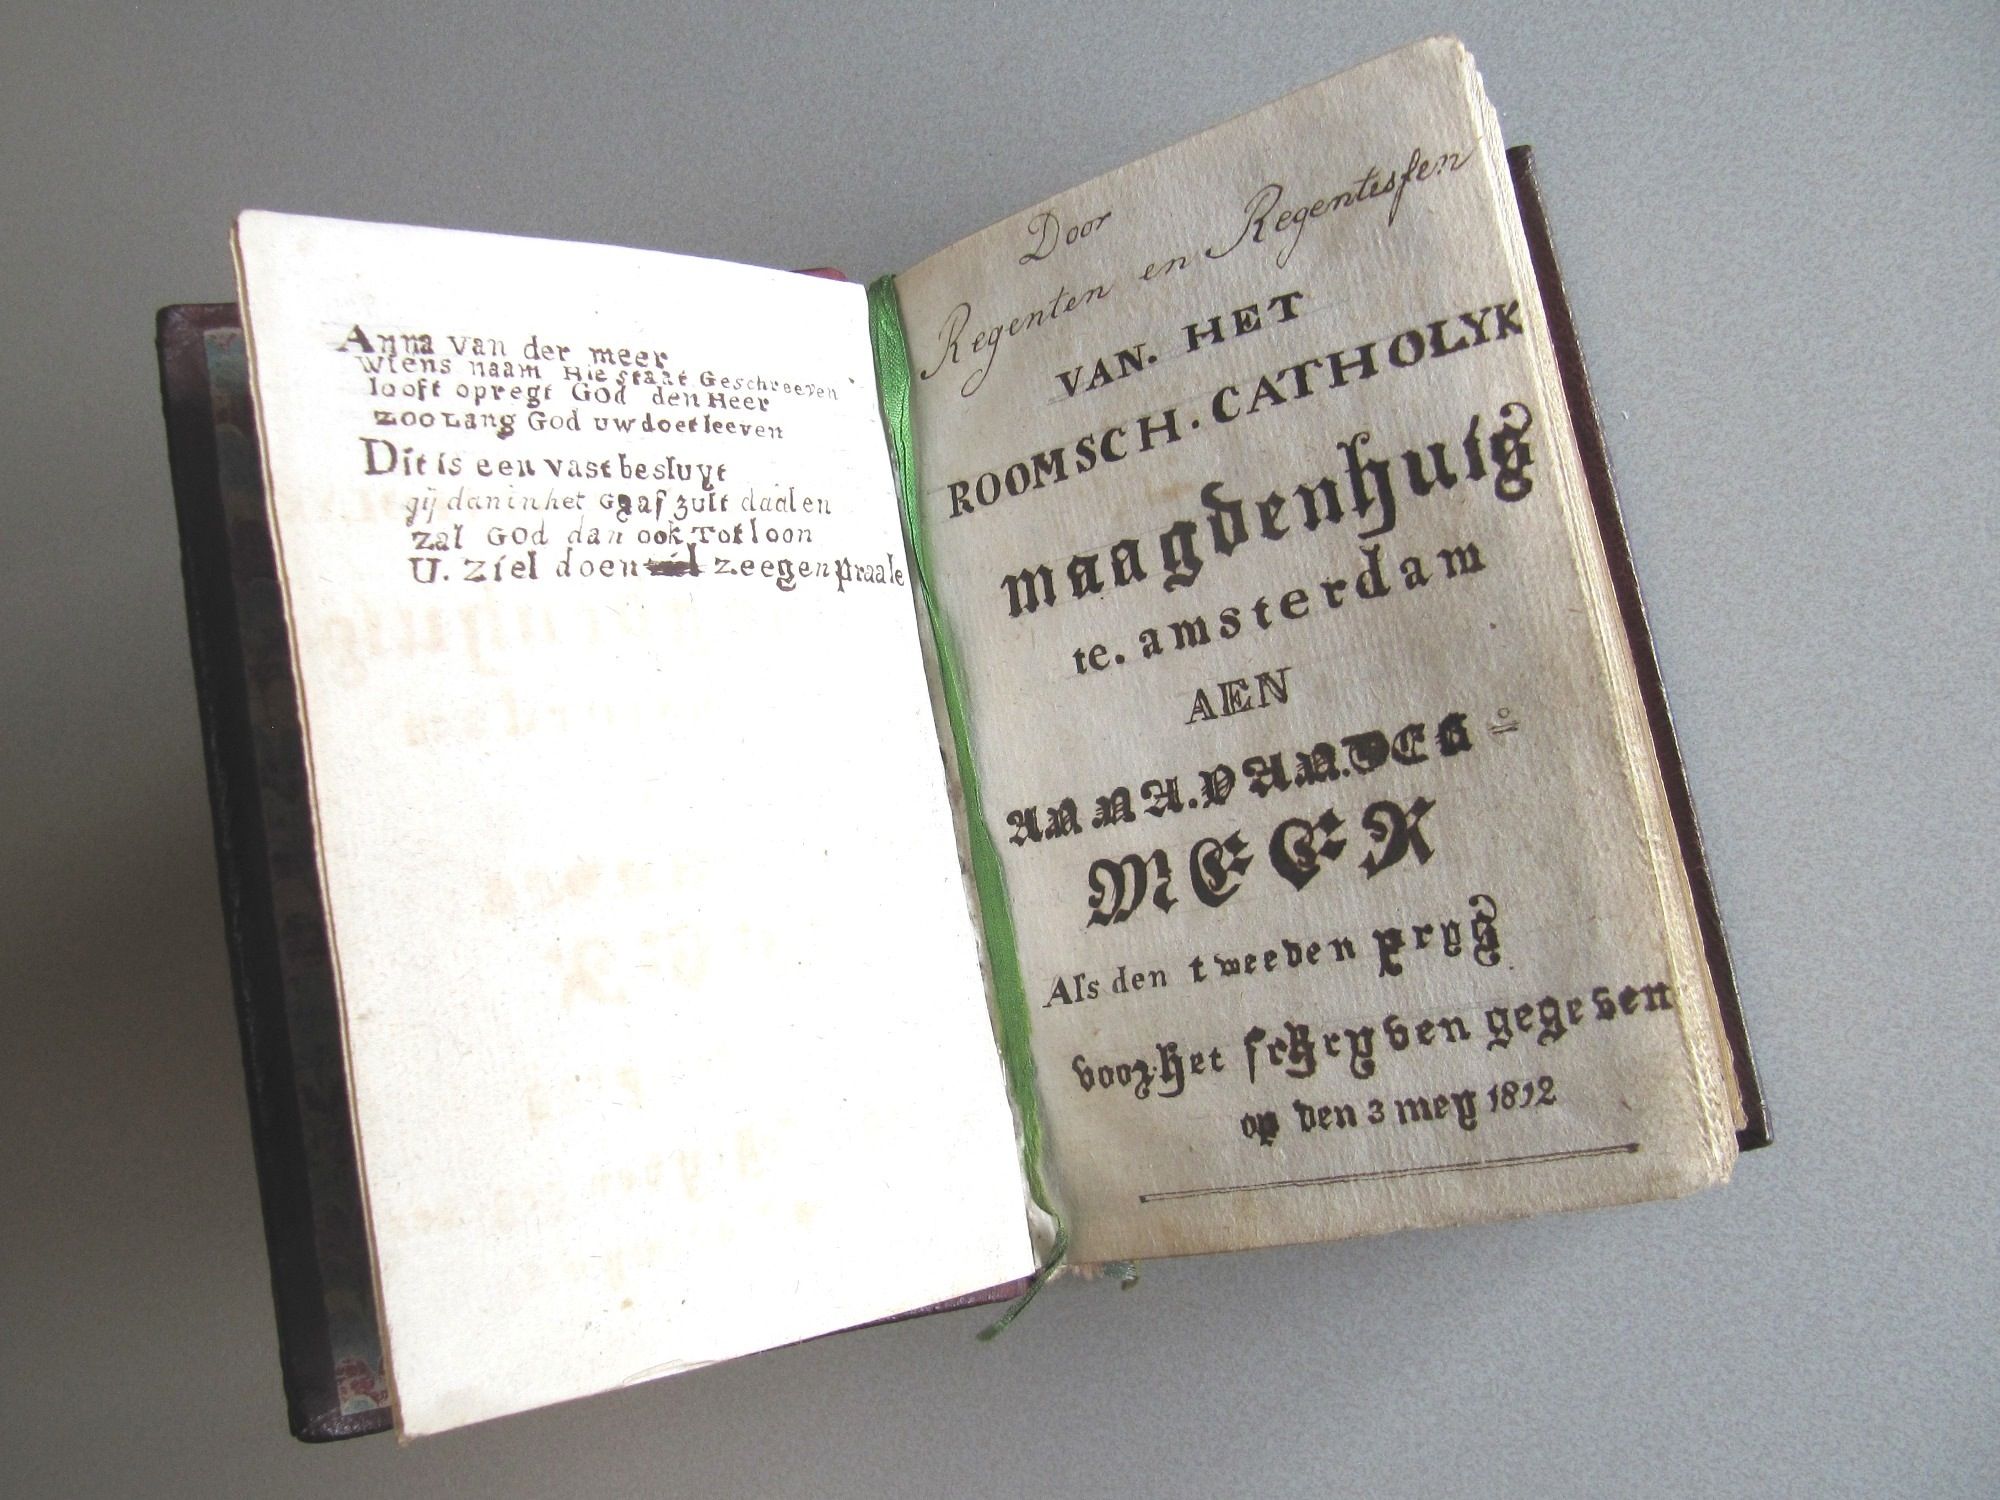 Anna van der meer
wiens naam Hie staat Geschreeven
looft opregt God den Heer
zoo Lang God uw doet leeven
Dit is een vast besluyt
gij dan in het Graf zult daalen
zal God dan ook Tot loon
U. ziel doen zeegenpraale
Door
Regenten en Regentesfen
VAN. HET
ROOMSCH. CATHOLYK
maagdenhuis
te. amsterdam
AEN
ANNA. VAN. DER =
MEER
Als den tweeden prys
voor. het schryven gegeven
op den 3 mey 1812